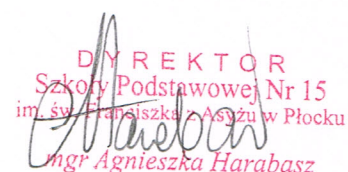 DYREKTOR
Szkoły Podstawowej Nr 15
im. św. Franciszka z Asyżu w Płocku
mgr Agnieszka Harabasz